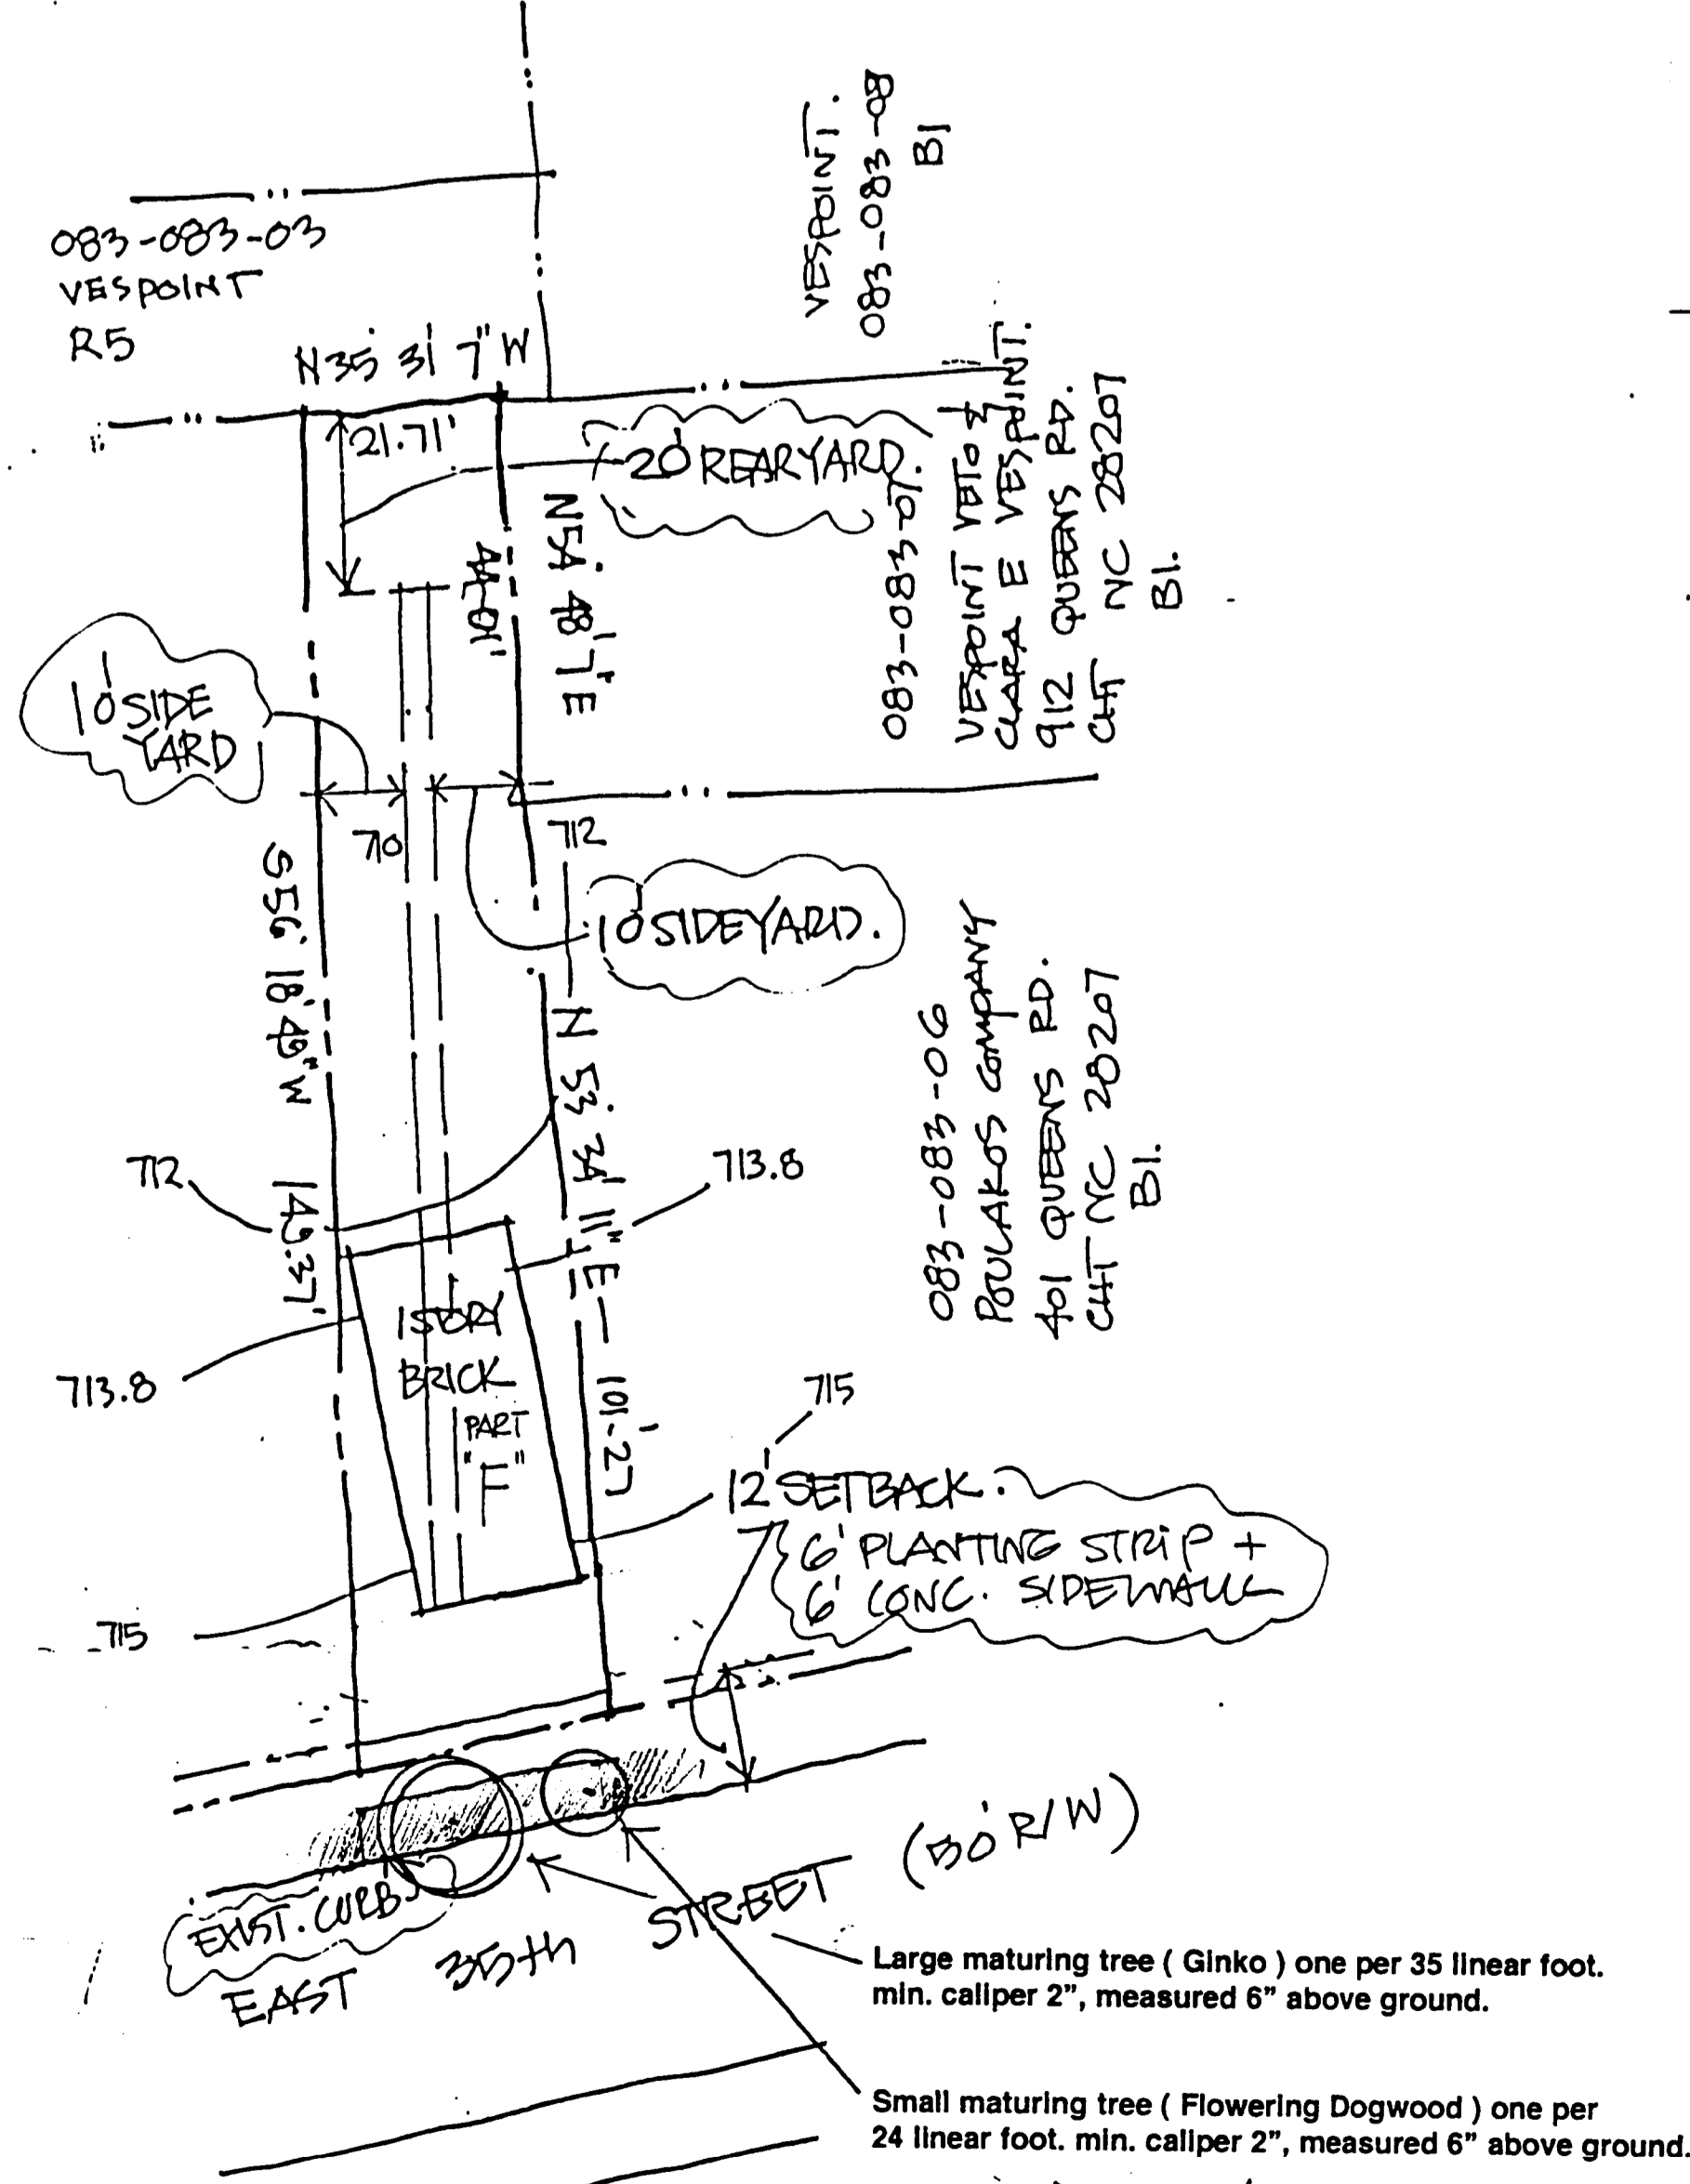 VESPOINT.
083-083-08
B1
083-083-03
VESPOINT
R5
N35° 31' 7" W
21.71'
20' REARYARD.
N54° 48' 7" E
44-01'
083-083-07.
VESPOINT VETO &
CLARA E VESPOINT.
912 QUEENS RD.
CHT NC 28207
B1.
10' SIDE
YARD
710
712
10' SIDEYARD.
S56° 18' 49" W 149.37'
N 53° 34' 11" E 101-27'
083-083-06
POULAKOS COMPANY
401 QUEENS RD.
CHT NC 28207
B1.
712
713.8
713.8
1 STORY
BRICK
PART
"F"
715
12' SETBACK.
6' PLANTING STRIP +
6' CONC. SIDEWALK
715
EXIST. CURB
EAST 35th STREET (30' R/W)
Large maturing tree ( Ginko ) one per 35 linear foot.
min. caliper 2”, measured 6” above ground.
Small maturing tree ( Flowering Dogwood ) one per
24 linear foot. min. caliper 2”, measured 6” above ground.